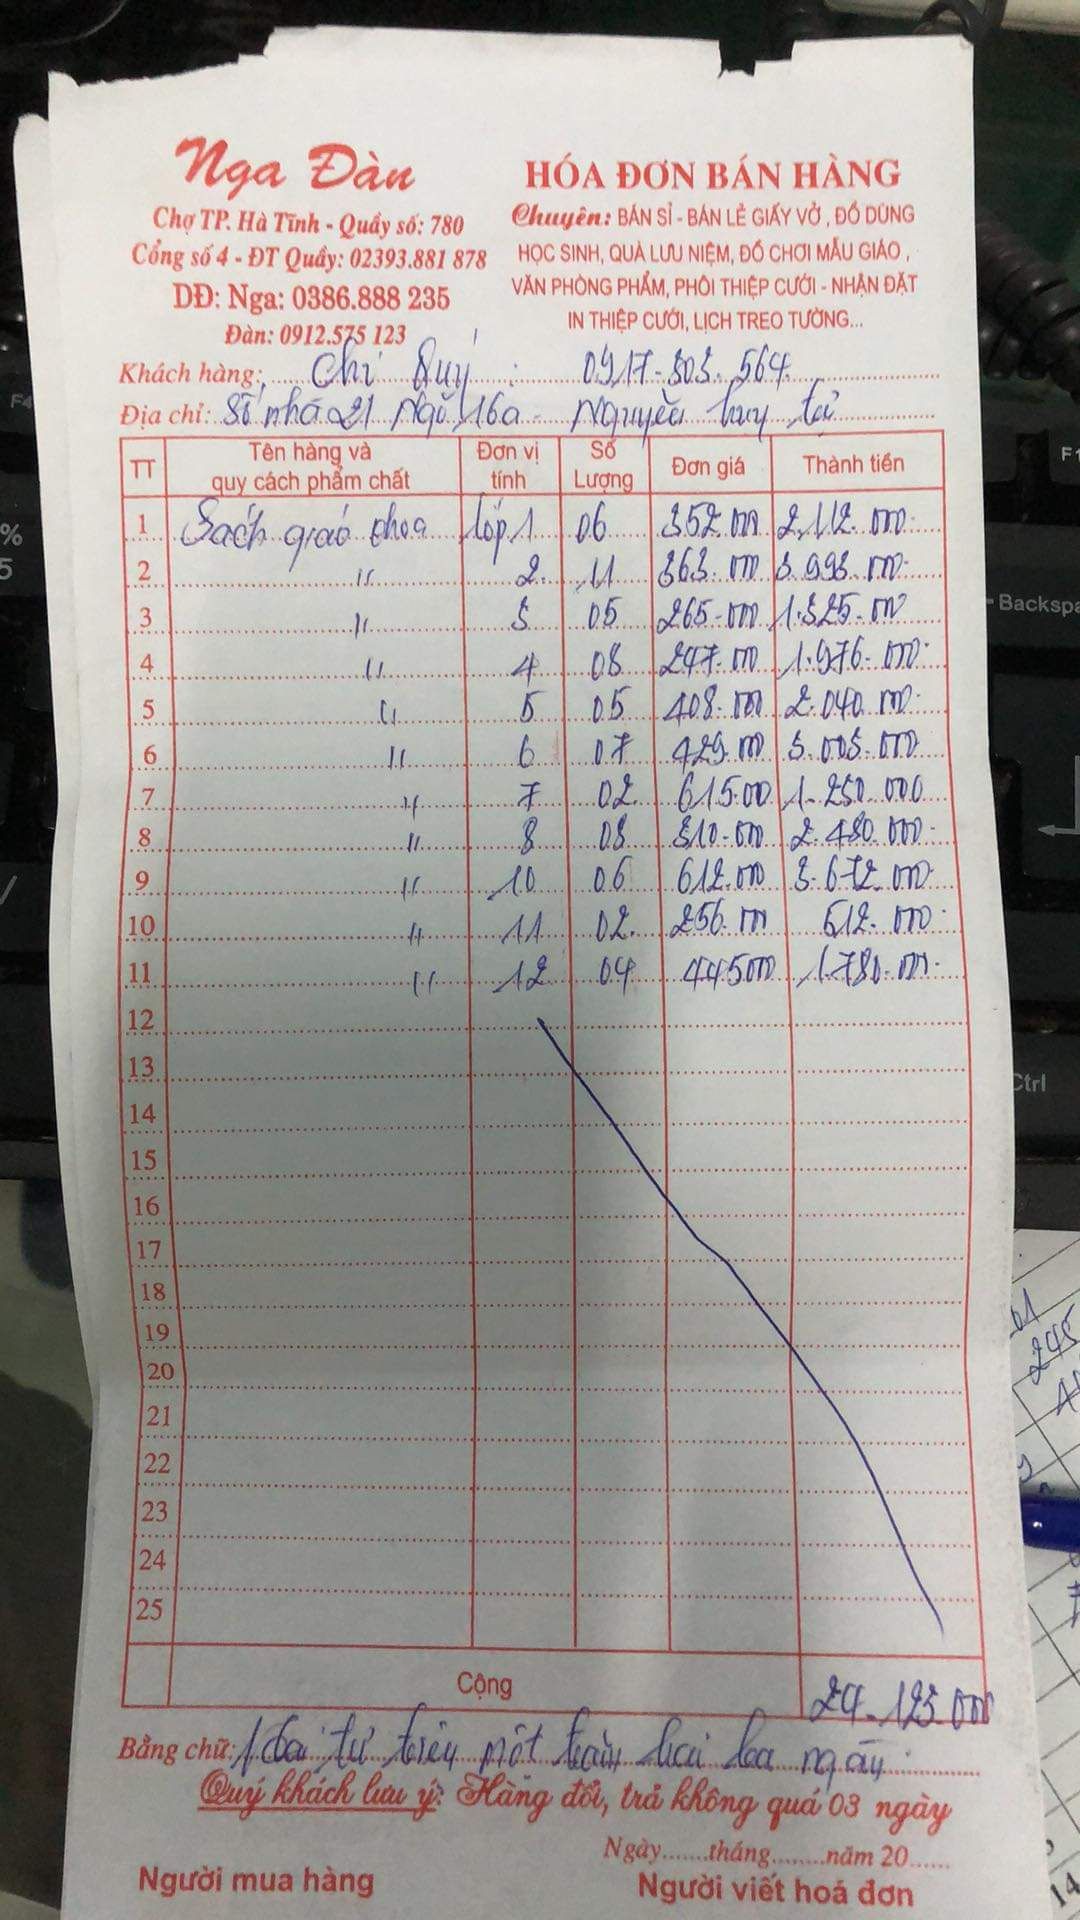 Nga Đàn
Chợ TP. Hà Tĩnh - Quầy số: 780
Cổng số 4 - ĐT Quầy: 02393.881 878
DĐ: Nga: 0386.888 235
Đàn: 0912.575 123
HÓA ĐƠN BÁN HÀNG
Chuyên: BÁN SỈ - BÁN LẺ GIẤY VỞ, ĐỒ DÙNG
HỌC SINH, QUÀ LƯU NIỆM, ĐỒ CHƠI MẪU GIÁO,
VĂN PHÒNG PHẨM, PHÔI THIỆP CƯỚI - NHẬN ĐẶT
IN THIỆP CƯỚI, LỊCH TREO TƯỜNG...
Khách hàng: Chị Quý : 0917-303.564.
Địa chỉ: Số nhà 21 Ngõ 16a - Nguyễn huy tự
TT Tên hàng và quy cách phẩm chất Đơn vị tính Số Lượng Đơn giá Thành tiền
1 Sách giáo khoa lớp 1 06 352.000 2.112.000
2 " 2. 11 363.000 3.993.000
3 " 3 05 265.000 1.325.000
4 " 4 08 247.000 1.976.000
5 " 5 05 408.000 2.040.000
6 " 6 07 429.000 3.003.000
7 " 7 02. 615.000 1.230.000
8 " 8 08 310.000 2.480.000
9 " 10 06 612.000 3.672.000
10 " 11 02. 256.000 512.000
11 " 12 04 445000 1.780.000
12
13
14
15
16
17
18
19
20
21
22
23
24
25
Cộng 24.123.000
Bằng chữ: Hai tư triệu một trăm hai ba ngàn
Quý khách lưu ý: Hàng đổi, trả không quá 03 ngày
Ngày.......tháng........năm 20......
Người mua hàng Người viết hoá đơn
F4
%
5
F1
Backspa
Ctrl
245
14